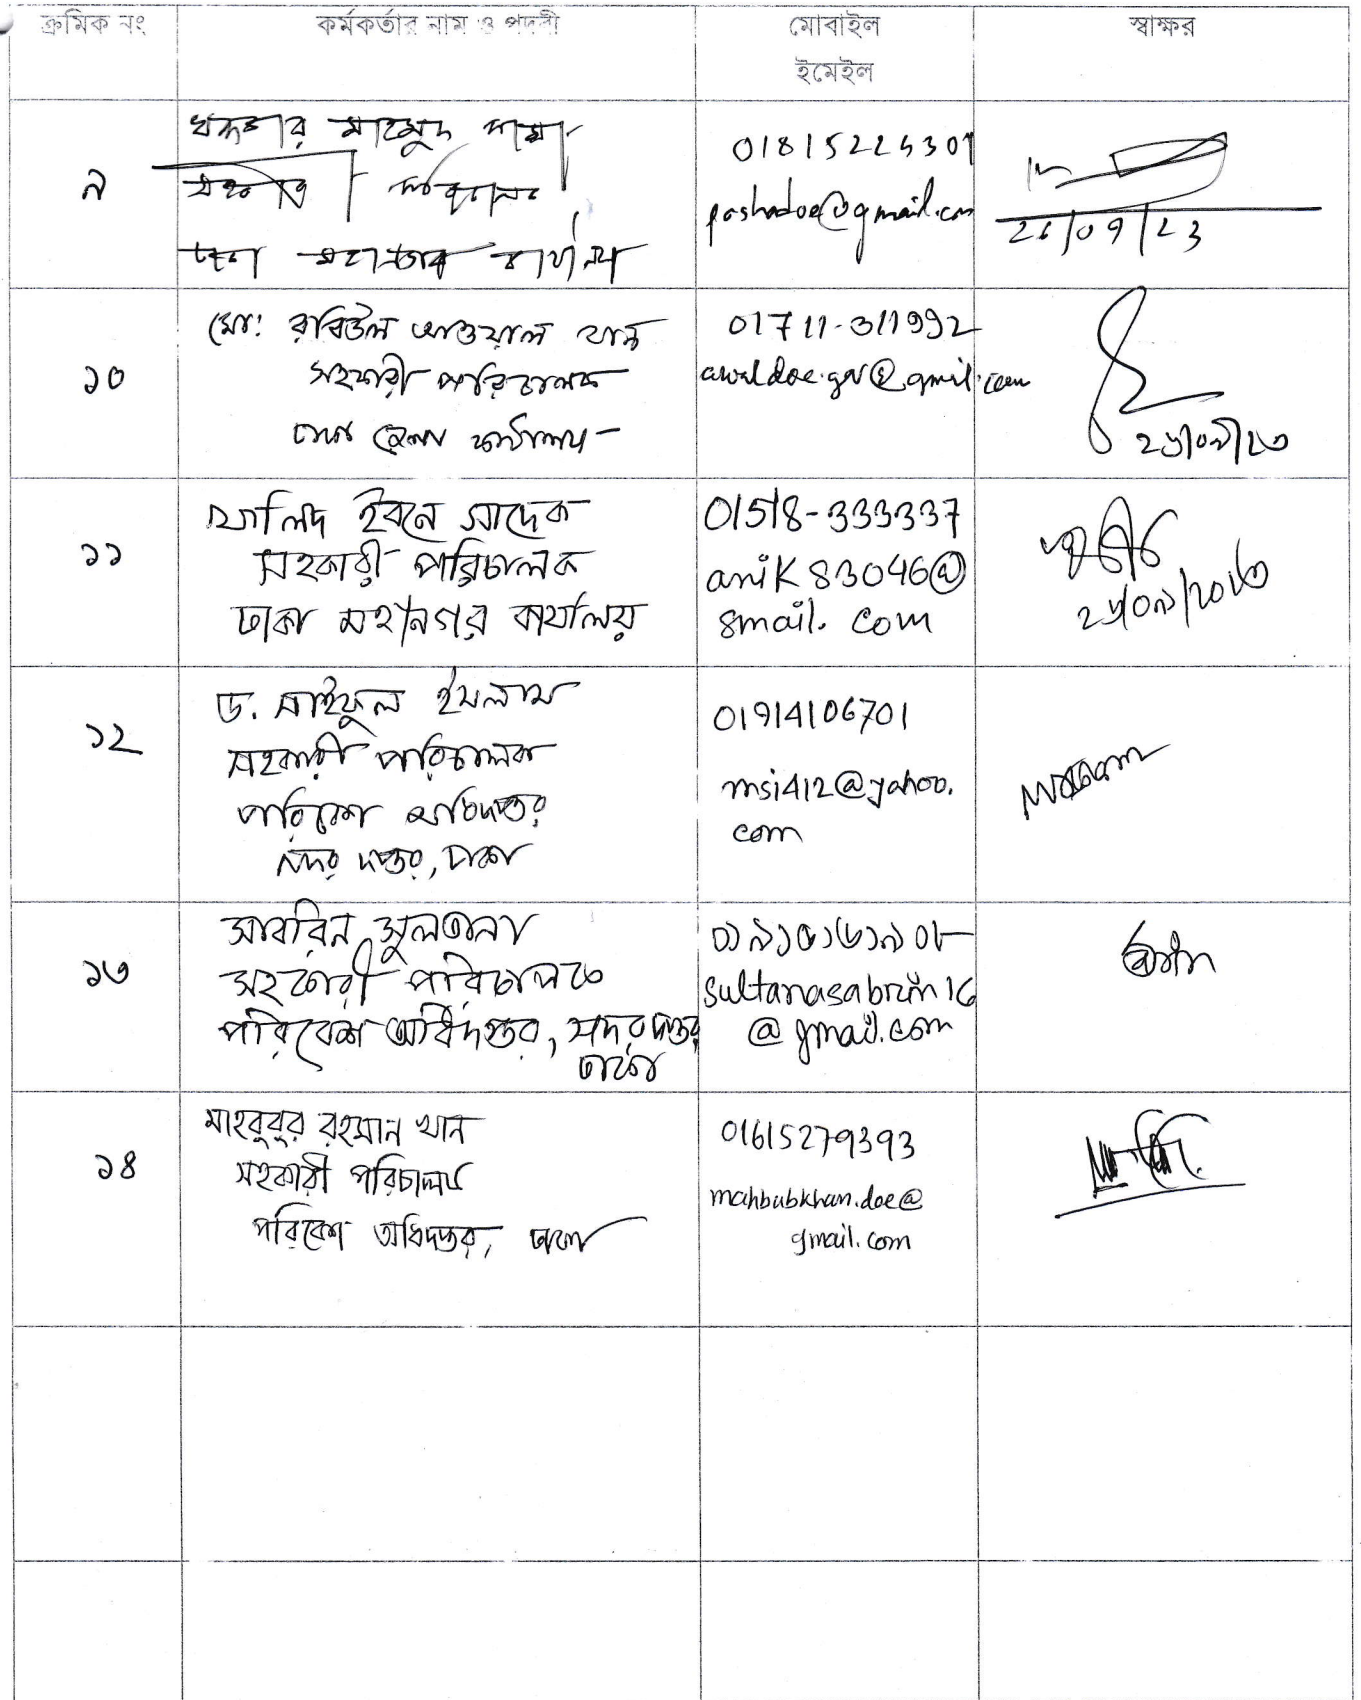 ক্রমিক নং
কর্মকর্তার নাম ও পদবী
মোবাইল
ইমেইল
স্বাক্ষর
৯
খন্দকার মাহমুদ পাশা
সহকারী পরিচালক
ঢাকা মহানগর কার্যালয়
01815224301
pashadoe@gmail.com
26/09/23
১০
মো: রবিউল আওয়াল খান
সহকারী পরিচালক
ঢাকা জেলা কার্যালয়
01711-311992
awaldoe.gov@gmail.com
২৬/০৯/২৩
১১
খালিদ ইবনে সাদেক
সহকারী পরিচালক
ঢাকা মহানগর কার্যালয়
01518-333337
anik83046@
gmail. com
১২
ড. সাইফুল ইসলাম
সহকারী পরিচালক
পরিবেশ অধিদপ্তর
সদর দপ্তর, ঢাকা
01914106701
msi412@yahoo.
com
১৩
সাবরিন সুলতানা
সহকারী পরিচালক
পরিবেশ অধিদপ্তর, সদর দপ্তর
ঢাকা
০১৯১৫১৬১৯০৮
sultanasabrin16
@gmail.com
১৪
মাহবুবুর রহমান খান
সহকারী পরিচালক
পরিবেশ অধিদপ্তর, ঢাকা
01615279393
mahbubkhan.doe@
gmail.com